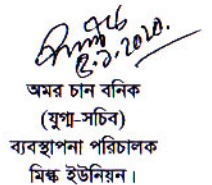 ৫.১.২০২০.
অমর চান বনিক
(যুগ্ম-সচিব)
ব্যবস্থাপনা পরিচালক
মিল্ক ইউনিয়ন।